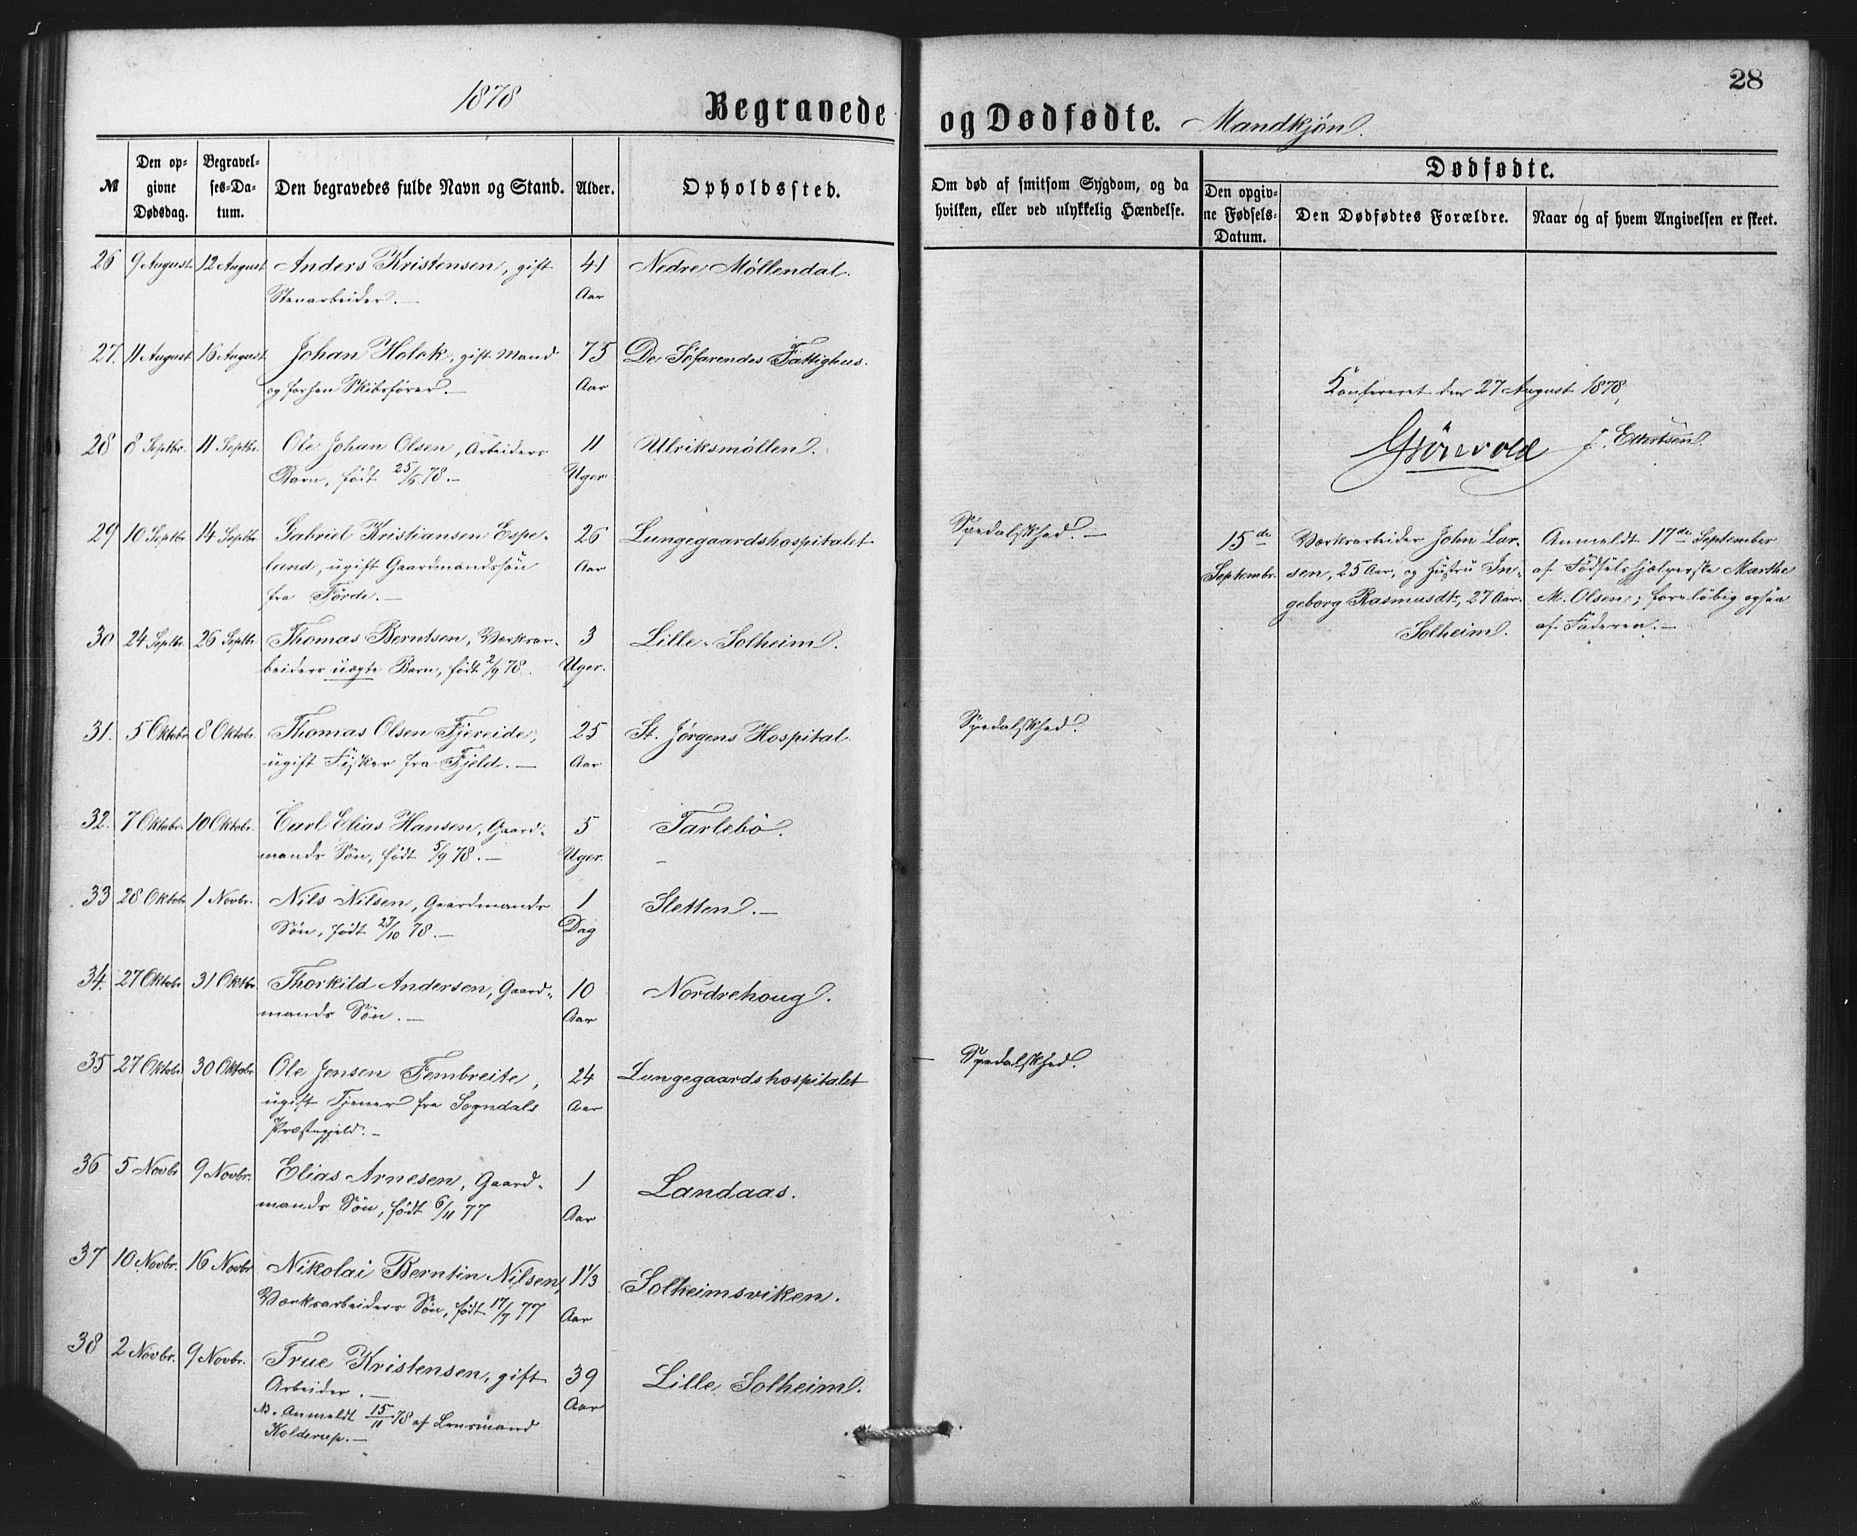 28
1878
Begravede og Dødfødte. Mandkjøn.
№
Den op-
givne
Dødsdag.
Begravel-
ses-Da-
tum.
Den begravedes fulde Navn og Stand.
Alder.
Opholdssted.
Om død af smitsom Sygdom, og da
hvilken, eller ved ulykkelig Hændelse.
Dødfødte.
Den opgiv-
ne Fødsels-
Datum.
Den Dødfødtes Forældre.
Naar og af hvem Angivelsen er skeet.
26 9 August 12 August Anders Kristensen, gift 41 Nedre Møllendal.
Stenarbeider. — Aar
27. 11 August 16 August Johan Holck, gift Mand 75 De Söfarendes Fattighus.
og forhen Skibsfører. — Aar
28 8 Septbr. 11 Septbr. Ole Johan Olsen, Arbeiders 11 Ulriksmøllen.
Barn, født 25/6 78. — Uger
29 10 Septbr 14 Septbr Gabriel Kristiansen Espe- 26 Lungegaardshospitalet Spedalskhed. —
lund, ugift Gaardmandssön Aar
fra Førde. —
30 24 Septbr. 26 Septbr. Thomas Berntsen, Værksar- 3 Lille-Solheim.
beiders uægte Barn, født 2/9 78. Uger.
31. 5 Oktobr 8 Oktobr. Thomas Olsen Fjereide, 25 St. Jørgens Hospital. Spedalskhed.
ugift Fisker fra Fjeld. — Aar
32. 7 Oktobr. 10 Oktobr. Carl Elias Hansen, Gaard- 5 Tarlebö.
mands Sön, født 5/9 78. — Uger.
33 28 Oktobr 1 Novbr. Nils Nilsen, Gaardmands 1 Sletten. —
Sön, født 27/10 78. — Dag
34. 27 Oktobr 31 Oktbr. Thorkild Andersen, Gaard- 10 Nordrehoug.
mands Sön. — Aar
35 27 Oktobr 30 Oktobr Ole Jensen Fembreite, 24 Lungegaardshospitalet Spedalskhed.
ugift Tjener fra Sogndals Aar
Præstegjeld. —
36 5 Novbr 9 Novbr. Elias Arnesen, Gaard- 1 Landaas.
mands Sön, født 6/11 77 Aar
37 10 Novbr. 16 Novbr Nikolai Berntin Nilsen, 1 1/3 Solheimsviken.
Værksarbeiders Sön, født 17/7 77 Aar
38 2 Novbr. 9 Novbr. True Kristensen, gift 39 Lille Solheim.
Arbeider. — Aar
Anmeldt 15/11 78 af Lensmand
Kolderup. —
Konfereret den 27 August 1878,
Grönvold J. Ellertsen.
15de
Septembr.
Værksarbeider John Lar-
sen, 25 Aar, og Hustru In-
geborg Rasmusdt., 27 Aar.
Solheim.
Anmeldt 17de September
af Fødselshjælperske Marthe
M. Olsen; foreløbig ogsaa
af Faderen. —